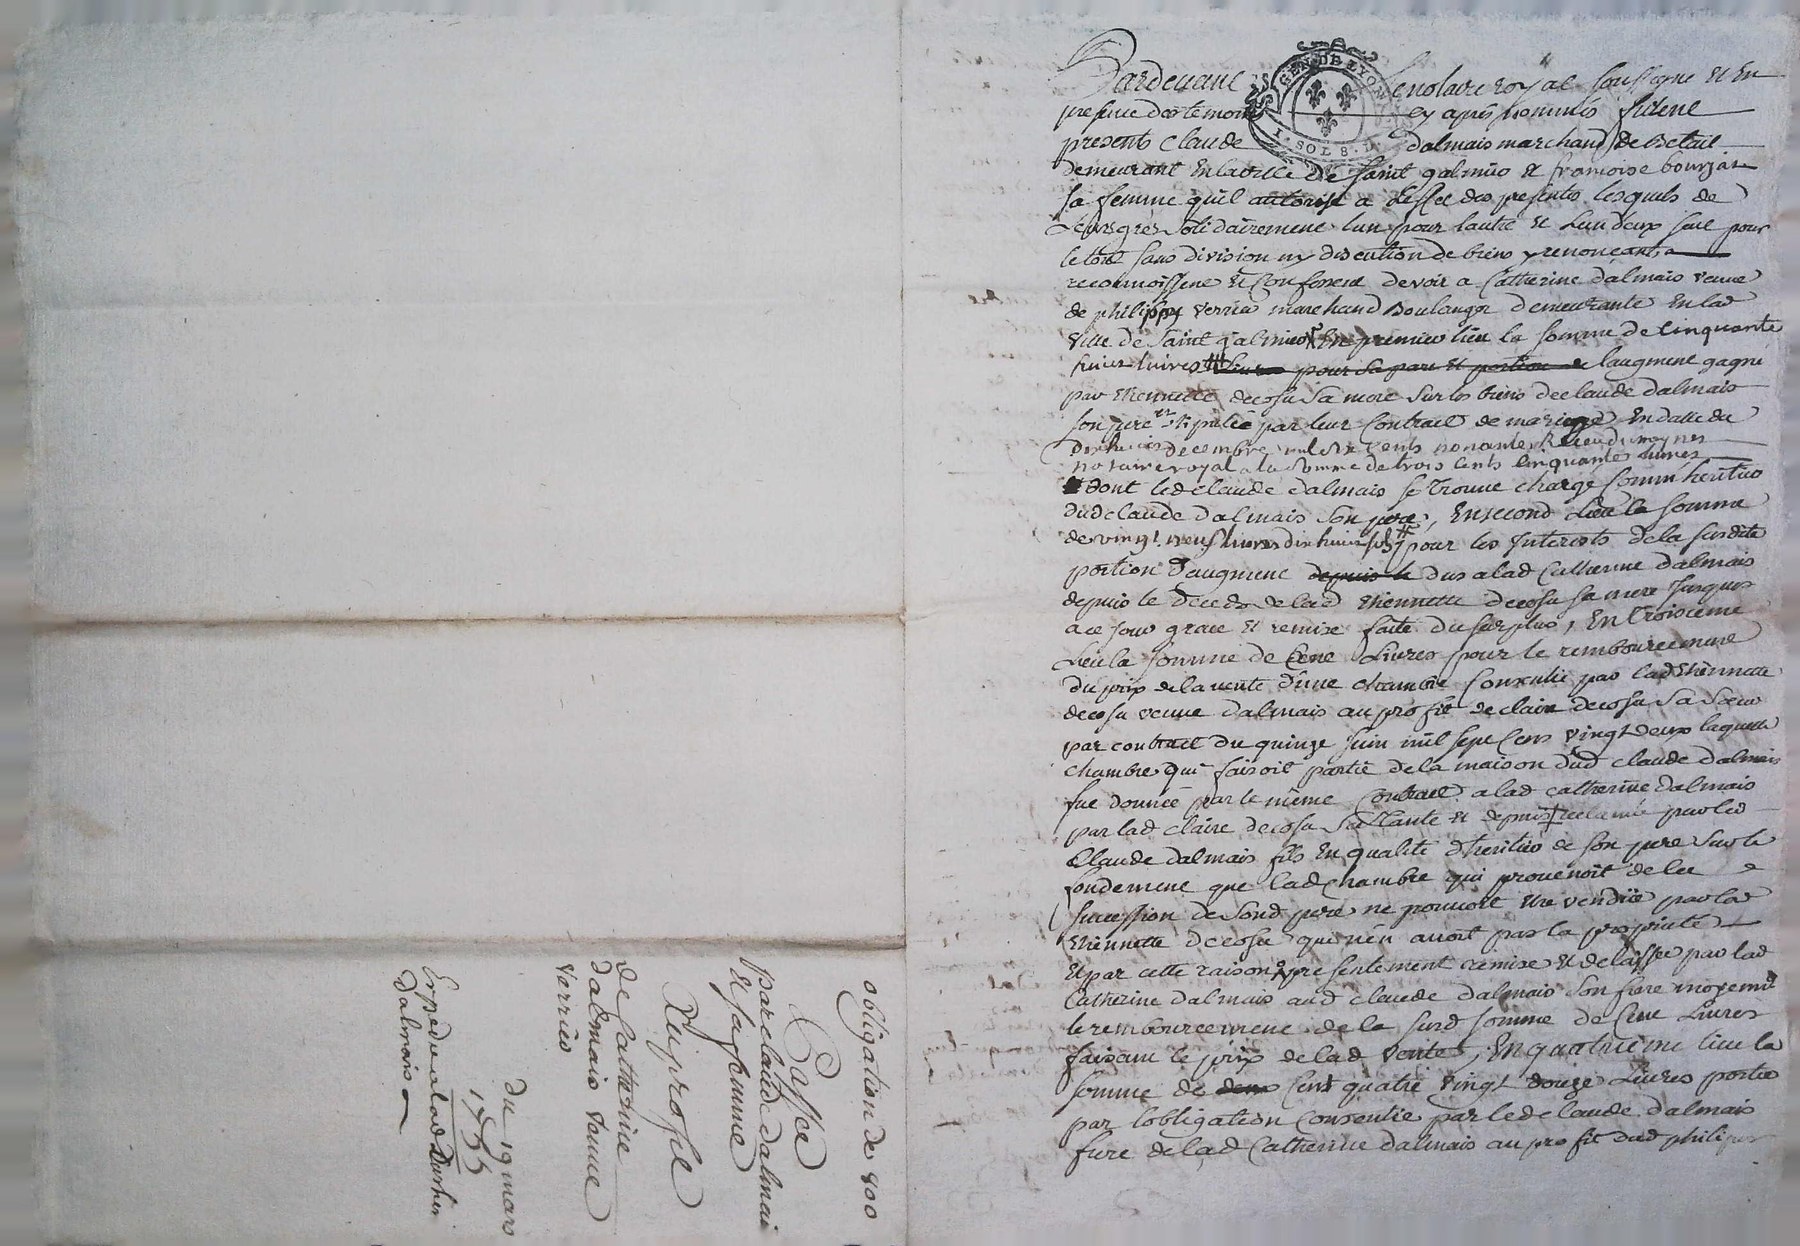 Pardevant le notaire royal soussigné et en
presence des temoins cy après nommés furent
presents Claude dalmais marchand de Betail
demeurant En la ville de Saint galmier et francoise bourjat
sa femme qu'il autorise a l'effet des presentes lesquels de
Leurs grés solidairement l'un pour l'autre et l'un d'eux seul pour
le tout sans division ny discution de biens y renonçants
reconnoissent et Confessent devoir a Catherine dalmais veuve
de philippe verriè marchand Boulanger demeurante En lad
ville de Saint galmier En premier lieu la somme de Cinquante
livres pour sa part et portion de laugment gagné
par Ethiennette decosu sa mere sur les biens de claude dalmais
son pere stipulée par leur Contract de mariage En datte du
decembre mil six cents nonante
notaire royal a la somme de trois Cents Cinquantes livres
dont led claude dalmais se trouve chargé Comm heritier
dud claude dalmais son pere, En second Lieu la somme
de vingt neuf livres dix huit sols pour les Interests de la susdite
portion d'augment depuis le dus a lad Catherine dalmais
depuis le deceds de lad Ethiennette decosu sa mere Jusques
a ce jour grace et remise faite du surplus, En troisieme
Lieu la somme de Cent Livres pour le rembourcement
du prix de la vente d'une chambre Consentie par lad Ethiennette
decosu veuve dalmais au profit de claire decosu sa soeur
par contract du quinze Juin mil sept Cens vingt deux laquelle
chambre qui faisoit partie de la maison dud claude dalmais
fut donnée par le même Contract a lad catherine dalmais
par lad claire decosu sa Tante et depuis reclamée par led
Claude dalmais fils En qualité d'heritier de son pere sur le
fondement que lad chambre qui provenoit de la
succession de sond pere ne pouvoit etre vendüe par la
Ethiennette decosu qui n'en avoit pas la proprieté
Et par cette raison presentement remise et delaissée par lad
Catherine dalmais aud claude dalmais son frere moyennt
le rembourcement de la surd somme de Cent Livres
faisant le prix de lad vente, En quatrieme lieu la
somme de deux Cent quatre vingt douze Livres portée
par l'obligation Consentie par led claude dalmais
frere de lad Catherine dalmais au profit dud philippe
obligation de 800
Passée
par claude dalmai
Et sa femme
Au profit
de Catherine
dalmais veuve
verriès
du 19 mars
1755
Exped a lad
dalmais
GEN. DE LYON
1. SOL 8. D.